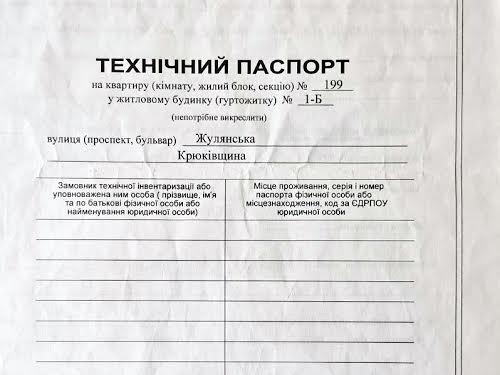 ТЕХНІЧНИЙ ПАСПОРТ
на квартиру (кімнату, жилий блок, секцію) № 199
у житловому будинку (гуртожитку) № 1-Б
(непотрібне викреслити)
вулиця (проспект, бульвар) Жулянська
Крюківщина
Замовник технічної інвентаризації або
уповноважена ним особа ( прізвище, ім'я
та по батькові фізичної особи або
найменування юридичної особи)
Місце проживання, серія і номер
паспорта фізичної особи або
місцезнаходження, код за ЄДРПОУ
юридичної особи